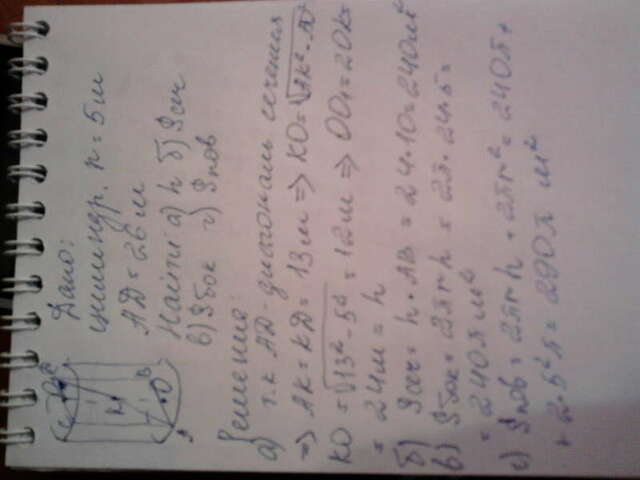 Дано:
цилиндр, r = 5м
AD = 26 м
Найти а) h б) Sсеч
в) Sбок г) Sпов
Решение:
а) т.к AD - диагональ сечения
=> AK = KD = 13 м => KO = √AK² - AO²
KO = √13² - 5² = 12м => OO₁ = 2OK =
= 24м = h
б) Sсеч = h · AB = 24 · 10 = 240м²
в) Sбок = 2πrh = 2π · 24 · 5 =
= 240π м²
г) Sпов = 2πrh + 2πr² = 240π +
+ 2 · 5²π = 290π м²
A
B
C
D
K
O